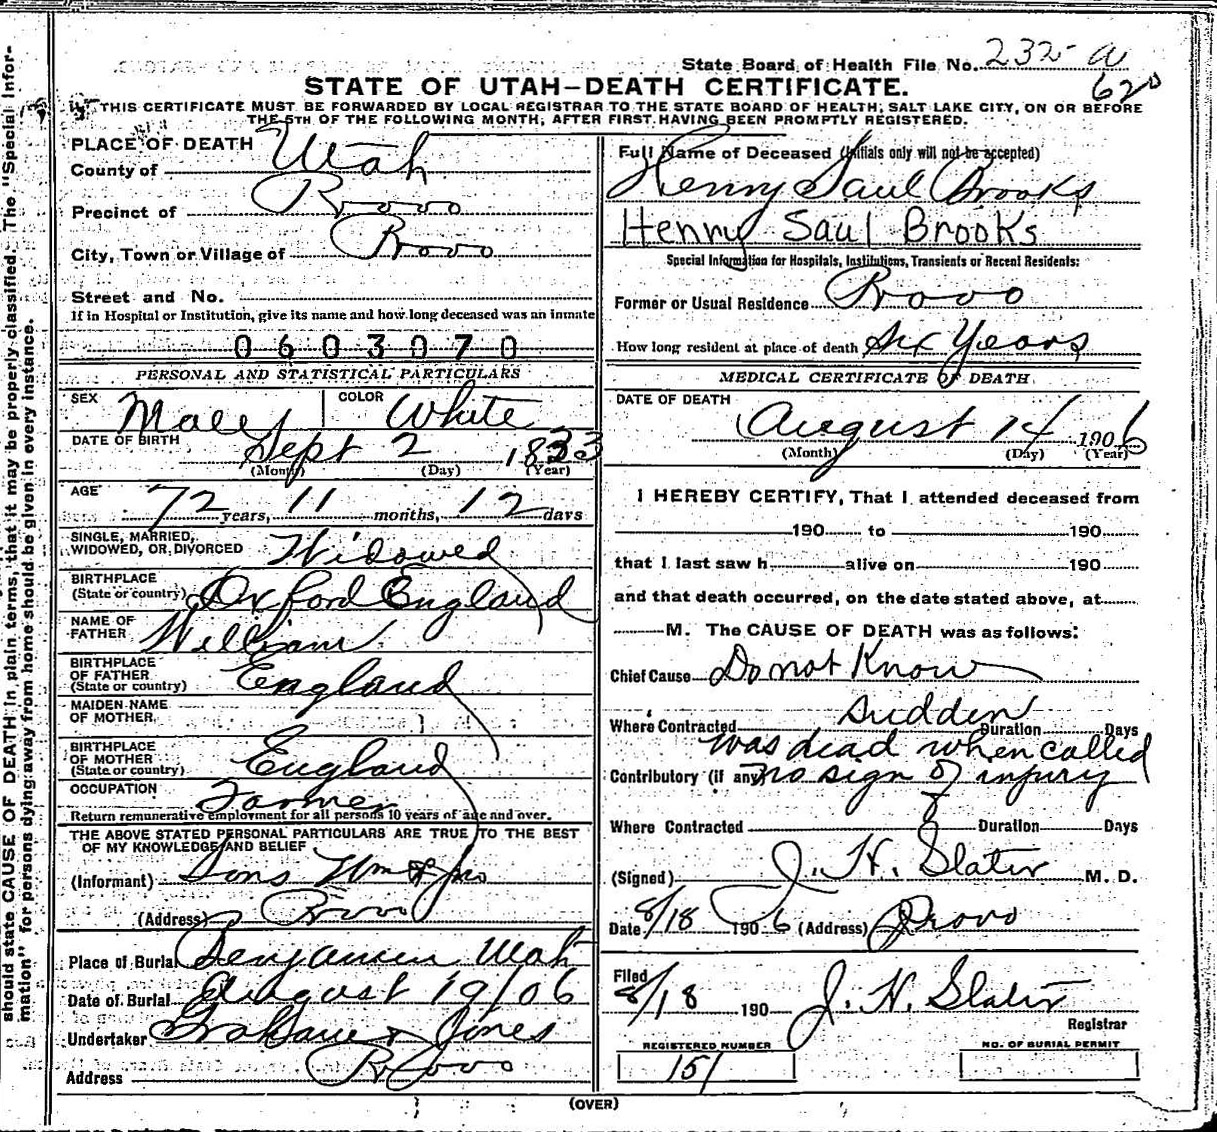 State Board of Health File No. 232 a
620
STATE OF UTAH–DEATH CERTIFICATE.
THIS CERTIFICATE MUST BE FORWARDED BY LOCAL REGISTRAR TO THE STATE BOARD OF HEALTH, SALT LAKE CITY, ON OR BEFORE
THE 5TH OF THE FOLLOWING MONTH, AFTER FIRST HAVING BEEN PROMPTLY REGISTERED.
should state CAUSE OF DEATH in plain terms, that it may be properly classified. The "Special Infor-
mation" for persons dying away from home should be given in every instance.
PLACE OF DEATH
County of Utah
Precinct of Provo
City, Town or Village of Provo
Street and No.
If in Hospital or Institution, give its name and how long deceased was an inmate
0603070
PERSONAL AND STATISTICAL PARTICULARS
SEX Male COLOR White
DATE OF BIRTH Sept 2 1833
(Month) (Day) (Year)
AGE 72 years, 11 months, 12 days
SINGLE, MARRIED, WIDOWED, OR DIVORCED Widowed
BIRTHPLACE (State or country) Oxford England
NAME OF FATHER William
BIRTHPLACE OF FATHER (State or country) England
MAIDEN NAME OF MOTHER
BIRTHPLACE OF MOTHER (State or country) England
OCCUPATION Farmer
Return remunerative employment for all persons 10 years of age and over.
THE ABOVE STATED PERSONAL PARTICULARS ARE TRUE TO THE BEST
OF MY KNOWLEDGE AND BELIEF
(Informant) Sons Wm & Jno
(Address) Provo
Place of Burial Benjamin Utah
Date of Burial August 19/06
Undertaker Graham & Jones
Address Provo
Full Name of Deceased (Initials only will not be accepted)
Henry Saul Brooks
Henry Saul Brooks
Special Information for Hospitals, Institutions, Transients or Recent Residents:
Former or Usual Residence Provo
How long resident at place of death Six Years
MEDICAL CERTIFICATE OF DEATH
DATE OF DEATH
August 14 1906
(Month) (Day) (Year)
I HEREBY CERTIFY, That I attended deceased from
190 to 190
that I last saw h alive on 190
and that death occurred, on the date stated above, at
M. The CAUSE OF DEATH was as follows:
Chief Cause Do not Know
sudden
Where Contracted Duration Days
was dead when called
Contributory (if any) no sign of injury
Where Contracted Duration Days
(Signed) J. H. Slater M. D.
Date 8/18 1906 (Address) Provo
Filed 8/18 190 J. H. Slater
Registrar
REGISTERED NUMBER NO. OF BURIAL PERMIT
151
(OVER)